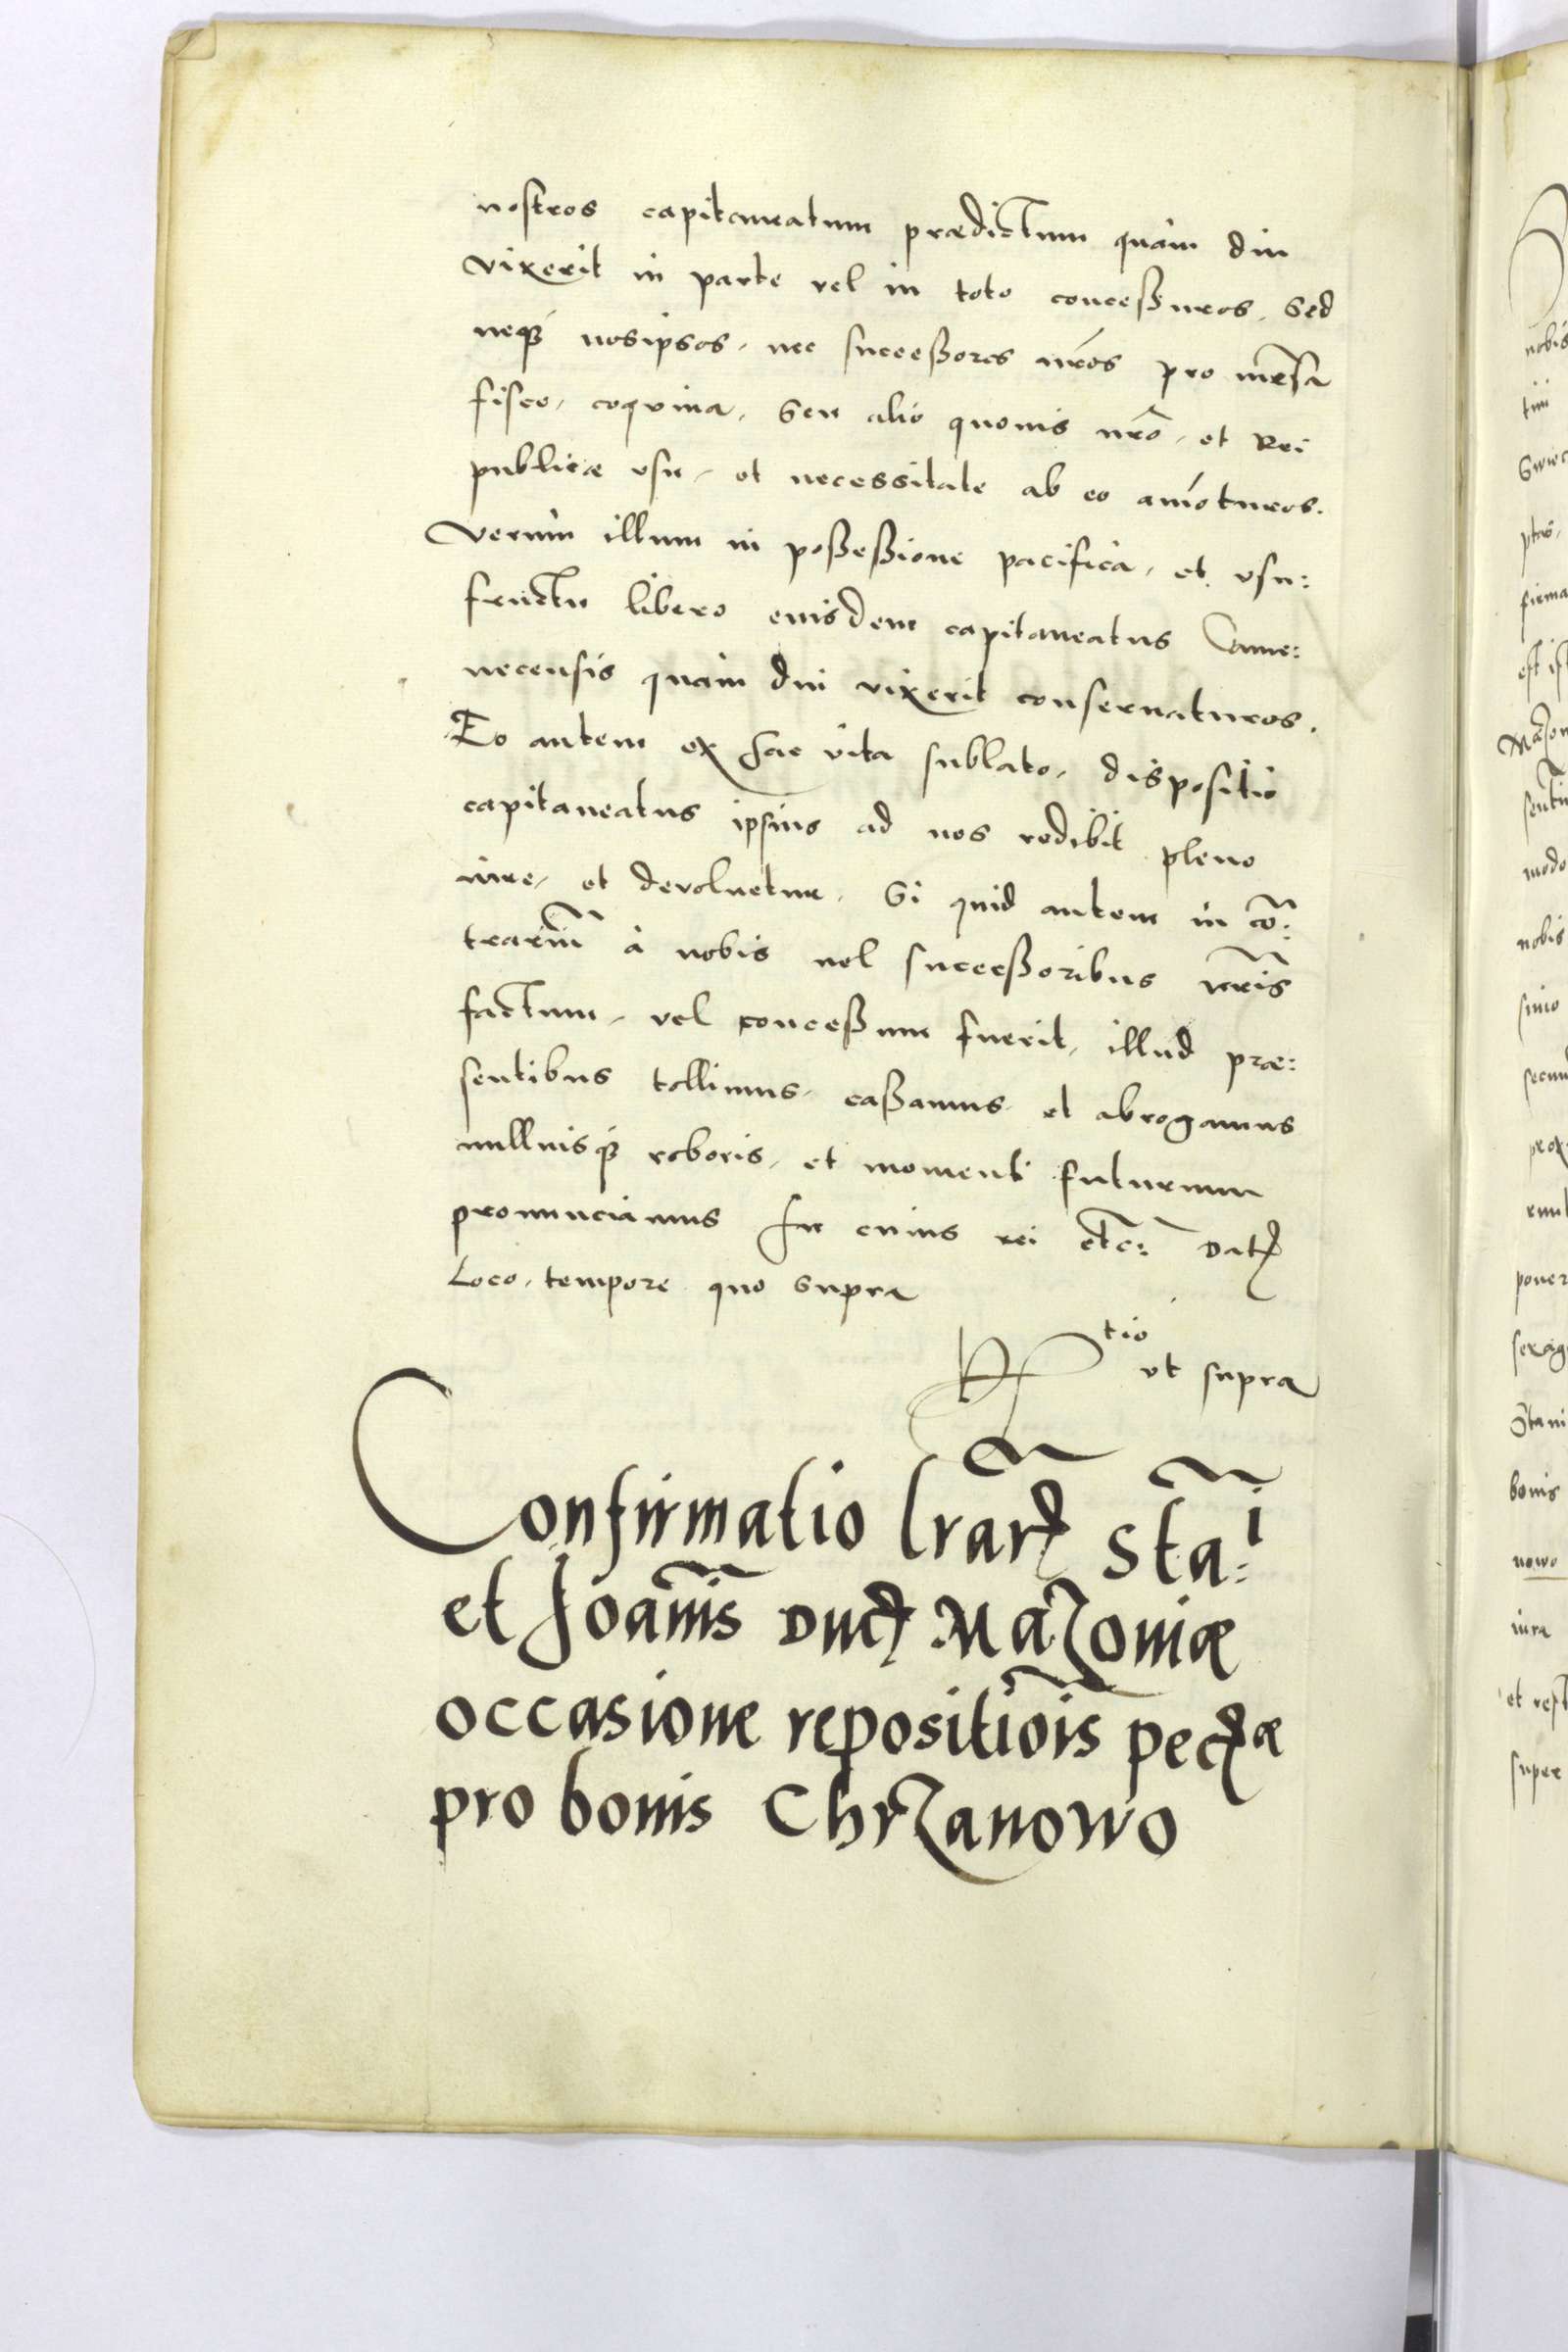 nostros capitaneatum prædictum quàm diu
vixerit in parte vel in toto concessuros, Sed
neq nosipsos, nec successores nr̃os pro mensa
fisco, coquina, Seu alio quouis nr̃o, et Rei
publicæ vsu, et necessitate ab eo amoturos.
Verum illum in possessione pacifica, et vsu:
fructu libero euisdem capitaneatus Came:
necensis quàm diu vixerit conseruaturos.
Eo autem ex hac vita sublato, dispositio
capitaneatus ipsius ad nos redibit pleno
iure, et devoluetur. Si quid autem in cõ:
trariũ à nobis uel successoribus nr̃is
factum, vel concessum fuerit, illud præ:
sentibus tollimus, cassamus, et abrogamus
nulliusq roboris, et momenti futurum
pronunciamus In cuius rei etc: Datꝭ
Loco, tempore quo supra
Rtio
vt supra
Confirmatio lr̃arꝭ Stai:
et Joãnis Ducꝭ Mazouiæ
occasione repositiõis pecꝭæ
pro bonis Chrzanowo
nobis
tin
Swiec
ptas,
firma
est ist
Mazou
sentu
modo
nobis
simo
secun
prox
rum
poner
sexag
bonis
nowo
iura
et rest
super